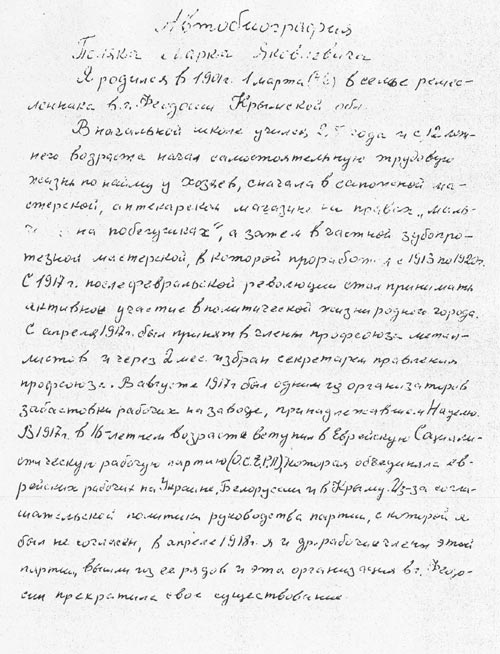 Автобиография
Поляка Марка Яковлевича
Я родился в 1901г. 1 марта в семье ремес-
ленника в г. Феодосии Крымской обл.
В начальной школе учился 2,5 года и с 12 лет-
него возраста начал самостоятельную трудовую
жизнь по найму у хозяев, сначала в сапожной ма-
стерской, аптекарском магазине на правах „маль-
на побегушках", а затем в частной зубопро-
тезной мастерской, в которой проработал с 1913 по 1920г.
С 1917г. после февральской революции стал принимать
активное участие в политической жизни родного города.
С апреля 1917г. был принят в члены профсоюза метал-
листов и через 2 мес. избран секретарем правления
профсоюза. В августе 1917г был одним из организаторов
забастовки рабочих на заводе, принадлежавшем
В 1917г. в 16-летнем возрасте вступил в Еврейскую Социали-
стическую рабочую партию (О.С.Е.Р.П), которая объединяла ев-
рейских рабочих на Украине, Белоруссии и в Крыму. Из-за согла-
шательской политики руководства партии, с которой я
был не согласен, в апреле 1918г. я и др. рабочие члены этой
партии, вышли из ее рядов и эта организация в г. Феодо-
сии прекратила свое существование.